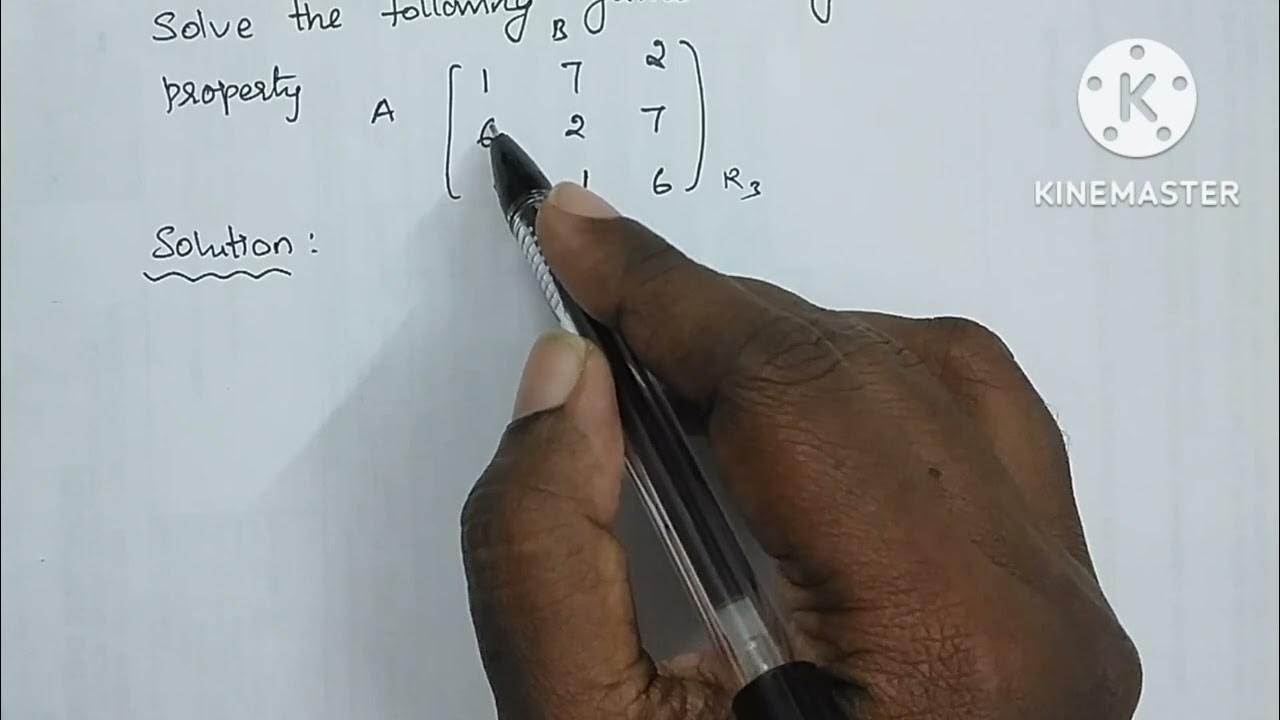 Solve the following
property A B
1 7 2
6 2 7
1 6 R3
Solution:
K
KINEMASTER